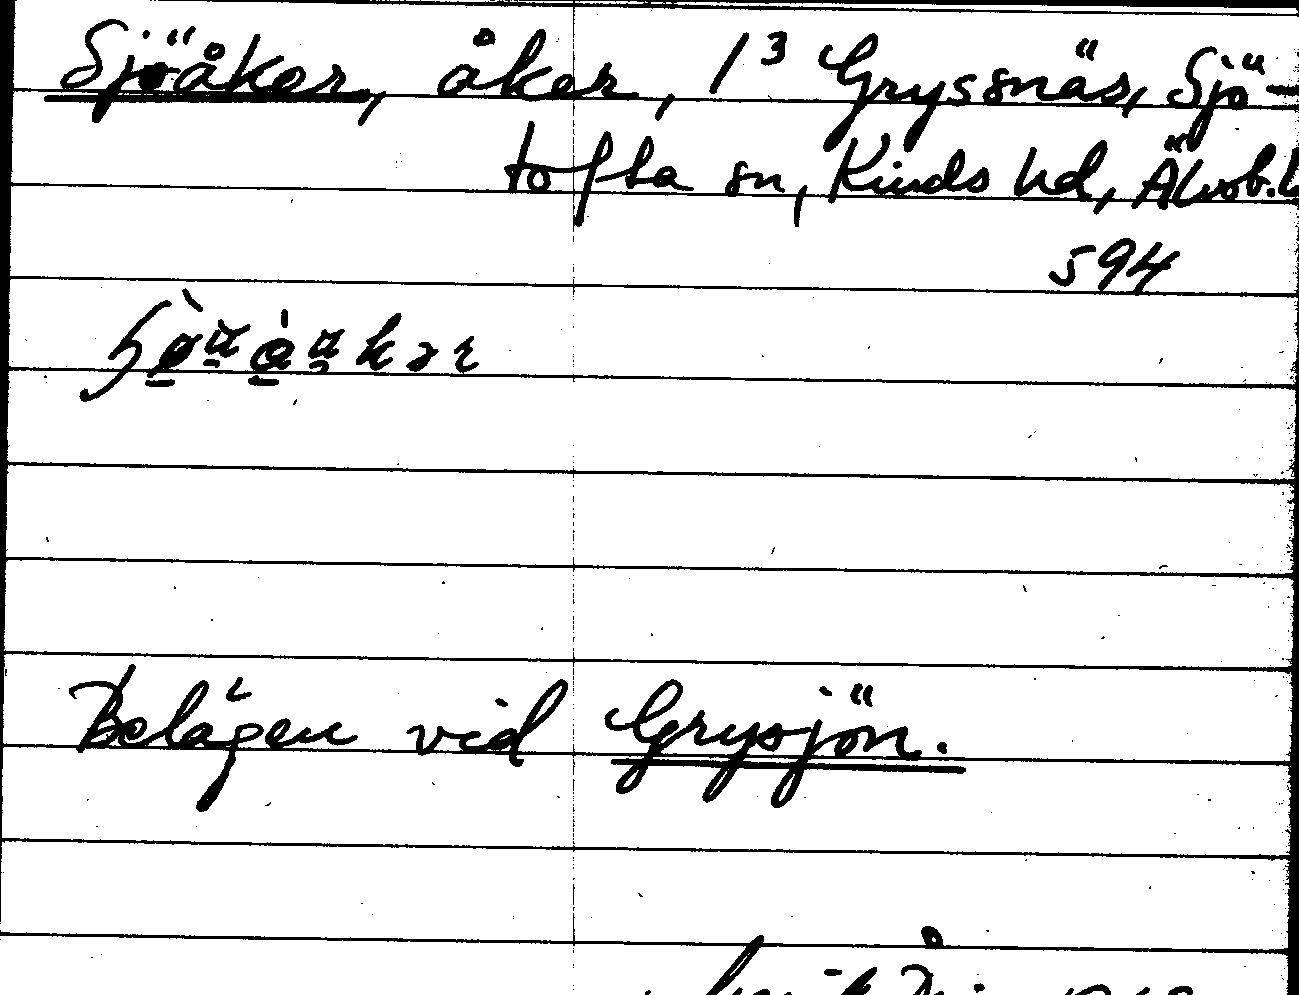 Sjöåker, åker, 1³ Gryssnäs, Sjö-
tofta sn, Kinds hd, Älvsb. l
594
Belägen vid Grysjön.